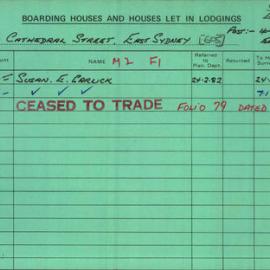 BOARDING HOUSES AND HOUSES LET IN LODGINGS
CATHEDRAL STREET, EAST SYDNEY
POST:-
NAME M2 F1
Referred to Plan. Dept.
Returned
SUSAN. E. GARLICK 24-2-82 24-
CEASED TO TRADE FOLIO 79 DATED